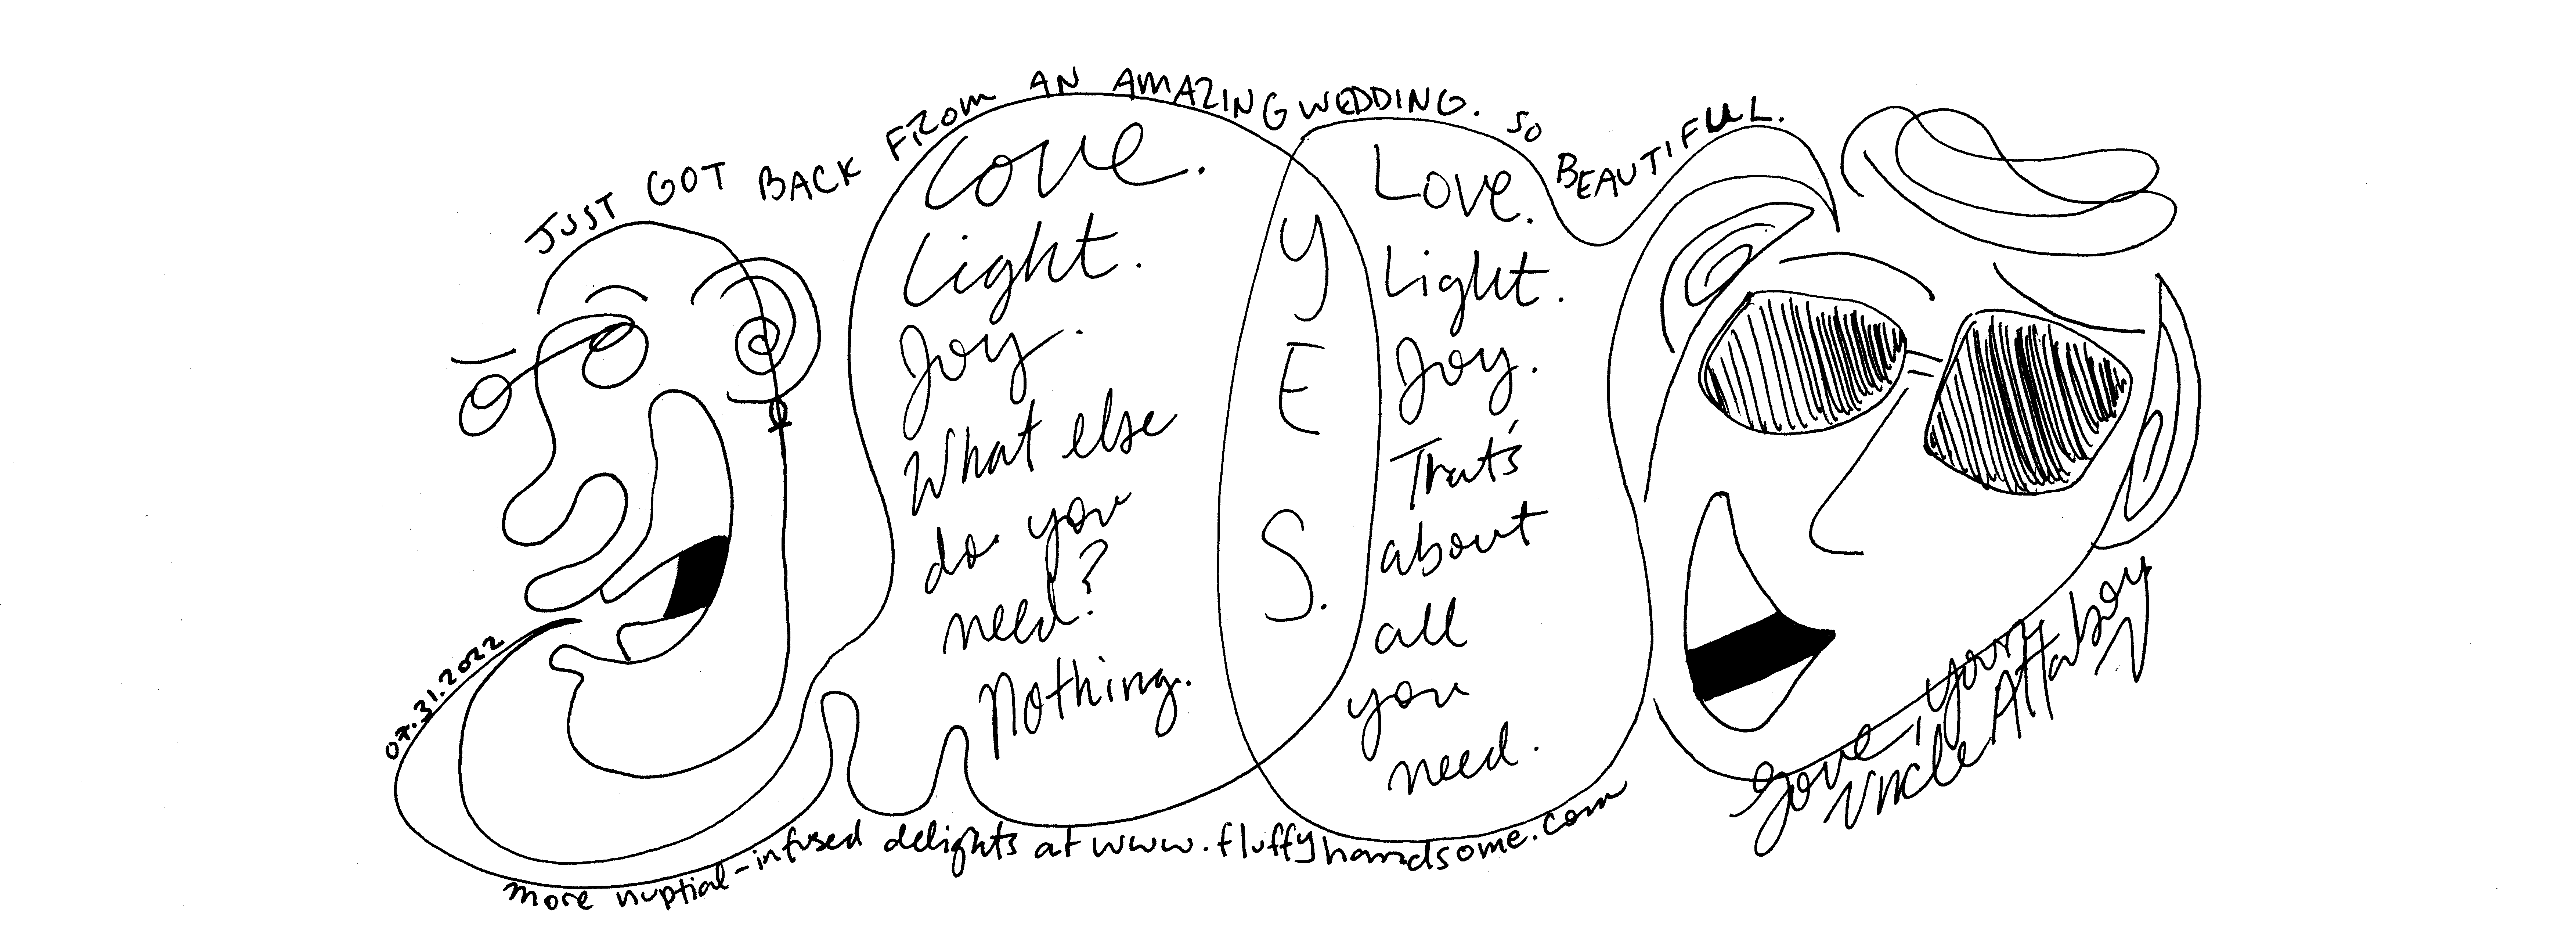 JUST GOT BACK FROM AN AMAZING WEDDING. SO BEAUTIFUL.
Love.
Light.
Joy.
What else
do you
need?
Nothing.
YES.
Love.
Light.
Joy.
That's
about
all
you
need.
07.31.2022
more nuptial-infused delights at www.fluffyhandsome.com
Love, your
Uncle Attaboy